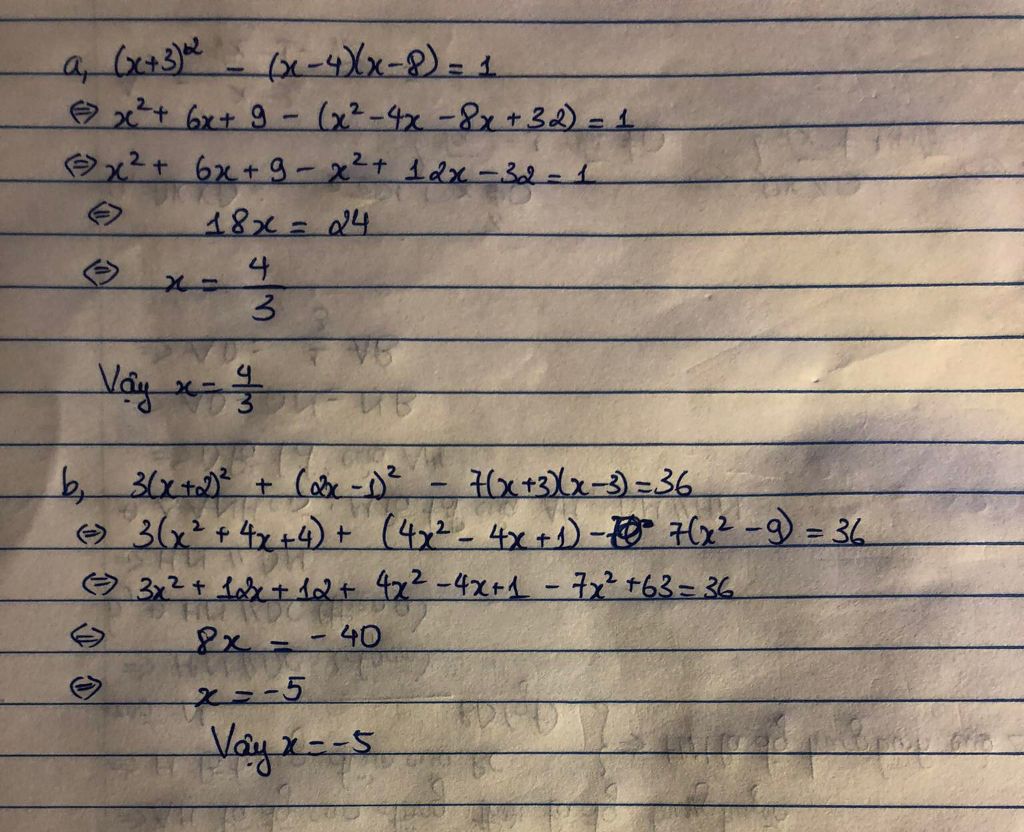 a, (x+3)² - (x-4)(x-8) = 1
⇔ x² + 6x + 9 - (x² - 4x - 8x + 32) = 1
⇔ x² + 6x + 9 - x² + 12x - 32 = 1
⇔ 18x = 24
⇔ x = 4/3
Vậy x = 4/3
b, 3(x+2)² + (2x-1)² - 7(x+3)(x-3) = 36
⇔ 3(x² + 4x + 4) + (4x² - 4x + 1) - 7(x² - 9) = 36
⇔ 3x² + 12x + 12 + 4x² - 4x + 1 - 7x² + 63 = 36
⇔ 8x = -40
⇔ x = -5
Vậy x = -5